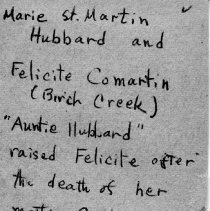 Marie St. Martin
Hubbard and
Felicite Comartin
(Birch Creek)
"Auntie Hubbard"
raised Felicite after
the death of her